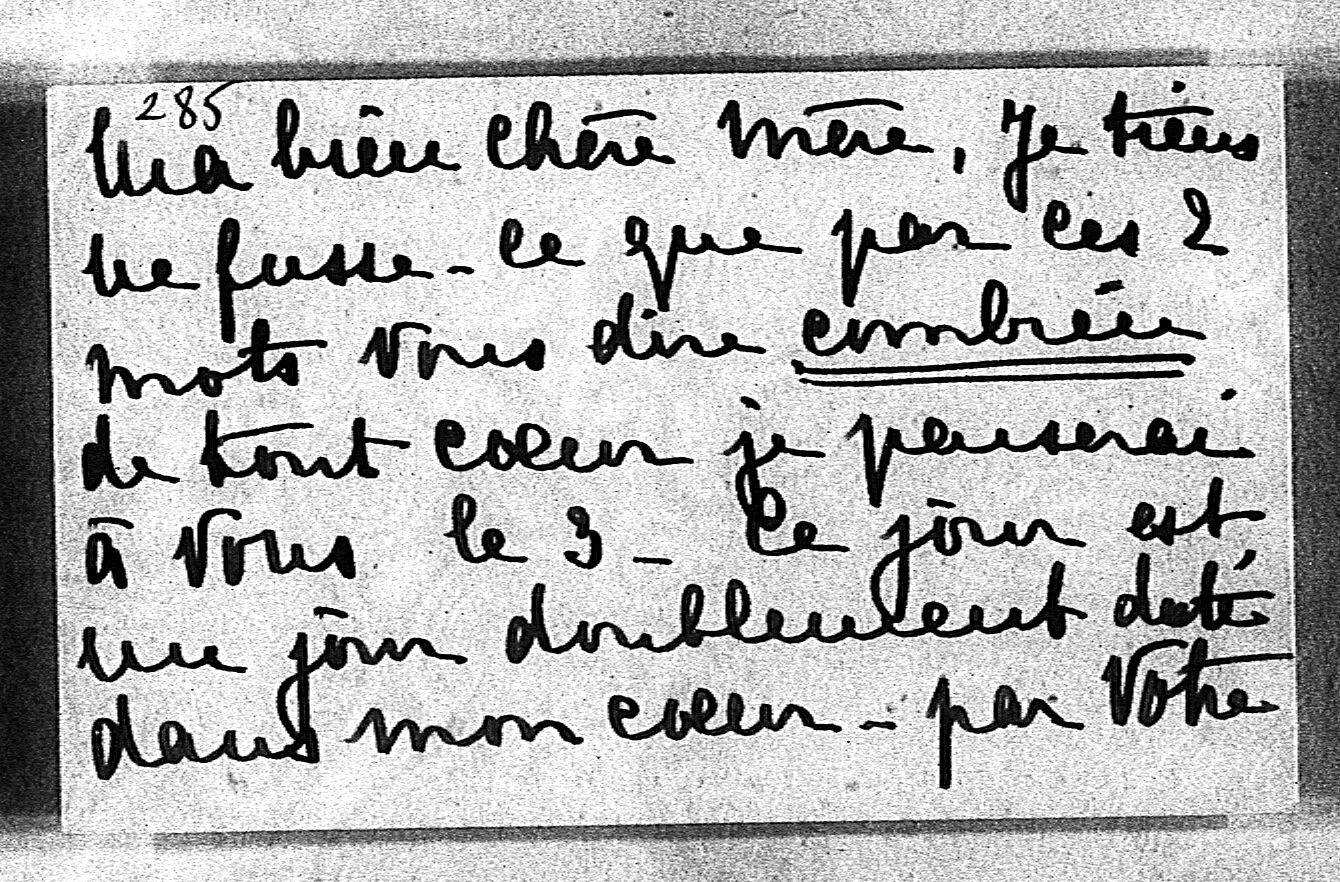 285
Ma bien chère mère, Je tiens
ne fusse-ce que par ces 2
mots vous dire combien
de tout coeur je penserai
à vous le 3 - Ce jour est
un jour doublement daté
dans mon coeur - par votre